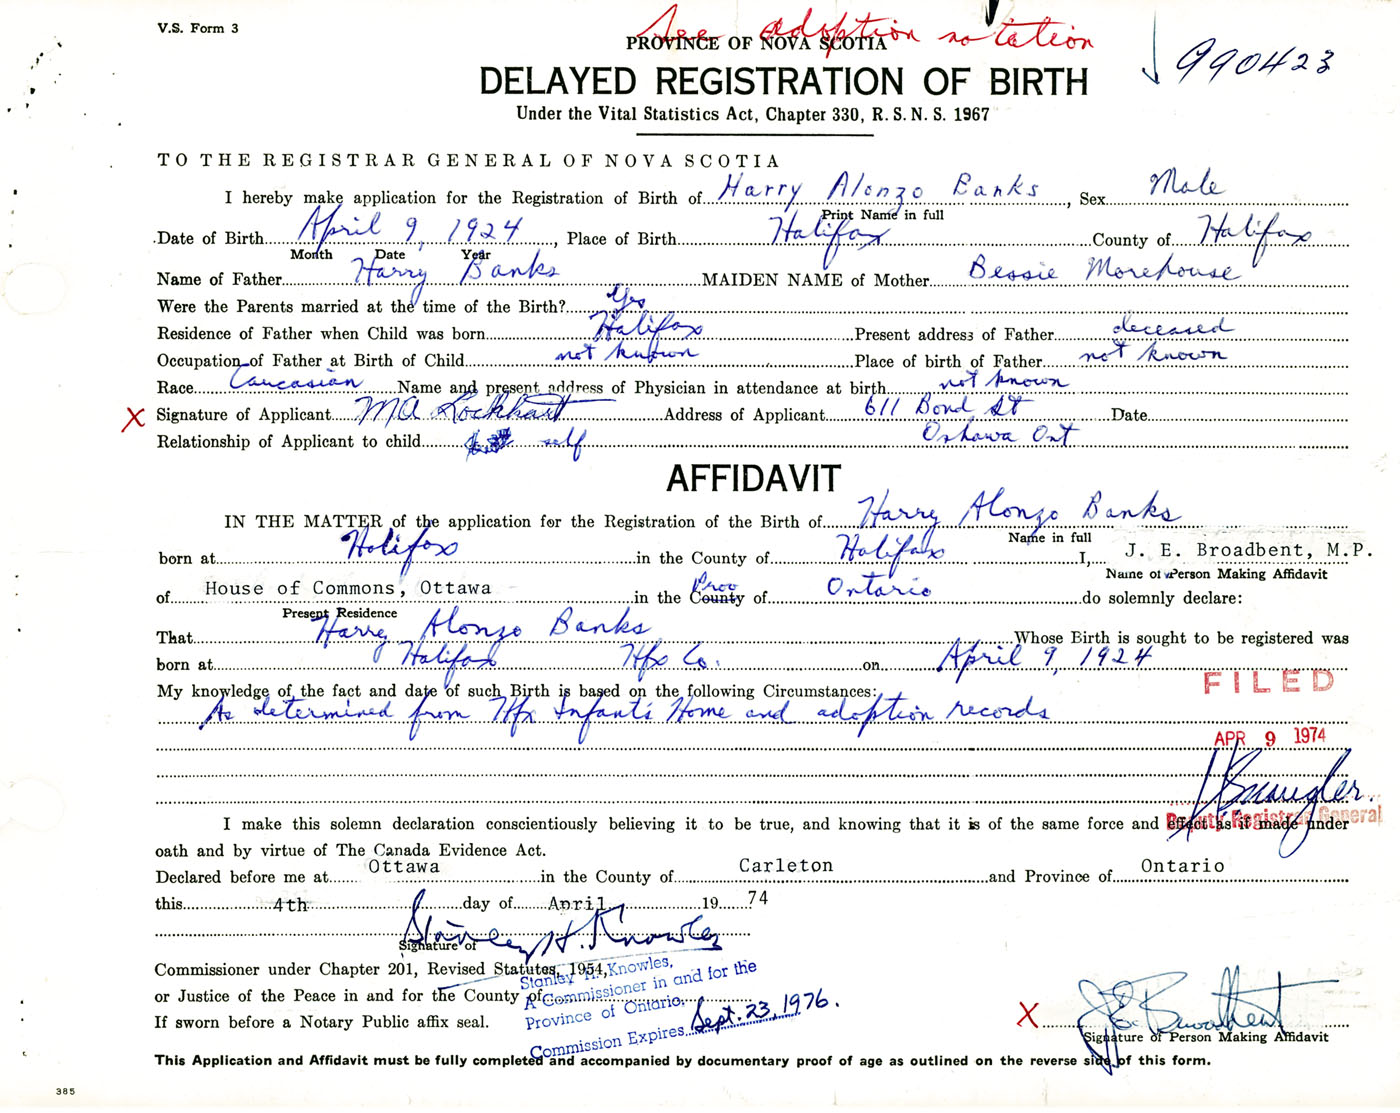 V.S. Form 3
See adoption notation
PROVINCE OF NOVA SCOTIA
990423
DELAYED REGISTRATION OF BIRTH
Under the Vital Statistics Act, Chapter 330, R.S.N.S. 1967
TO THE REGISTRAR GENERAL OF NOVA SCOTIA
I hereby make application for the Registration of Birth of Harry Alonzo Banks, Sex Male
Print Name in full
Date of Birth April 9, 1924, Place of Birth Halifax County of Halifax
Month Date Year
Name of Father Harry Banks MAIDEN NAME of Mother Bessie Morehouse
Were the Parents married at the time of the Birth? Yes
Residence of Father when Child was born Halifax Present address of Father deceased
Occupation of Father at Birth of Child not known Place of birth of Father not known
Race Caucasian Name and present address of Physician in attendance at birth not known
X Signature of Applicant M A Lockhart Address of Applicant 611 Bond St Date
Relationship of Applicant to child self Oshawa Ont
AFFIDAVIT
IN THE MATTER of the application for the Registration of the Birth of Harry Alonzo Banks
Name in full
born at Halifax in the County of Halifax I, J. E. Broadbent, M.P.
Name of Person Making Affidavit
of House of Commons, Ottawa in the County Prov of Ontario do solemnly declare:
Present Residence
That Harry Alonzo Banks Whose Birth is sought to be registered was
born at Halifax Hfx Co. on April 9, 1924
My knowledge of the fact and date of such Birth is based on the following Circumstances:
As determined from Hfx Infant's Home and adoption records
FILED
APR 9 1974
Deputy Registrar General
I make this solemn declaration conscientiously believing it to be true, and knowing that it is of the same force and effect as if made under
oath and by virtue of The Canada Evidence Act.
Declared before me at Ottawa in the County of Carleton and Province of Ontario
this 4th day of April 19 74
Stanley H. Knowles
Signature of
Commissioner under Chapter 201, Revised Statutes, 1954,
or Justice of the Peace in and for the County of
If sworn before a Notary Public affix seal.
Stanley H. Knowles,
A Commissioner in and for the
Province of Ontario.
Commission Expires Sept. 23, 1976.
X J E Broadbent
Signature of Person Making Affidavit
This Application and Affidavit must be fully completed and accompanied by documentary proof of age as outlined on the reverse side of this form.
385